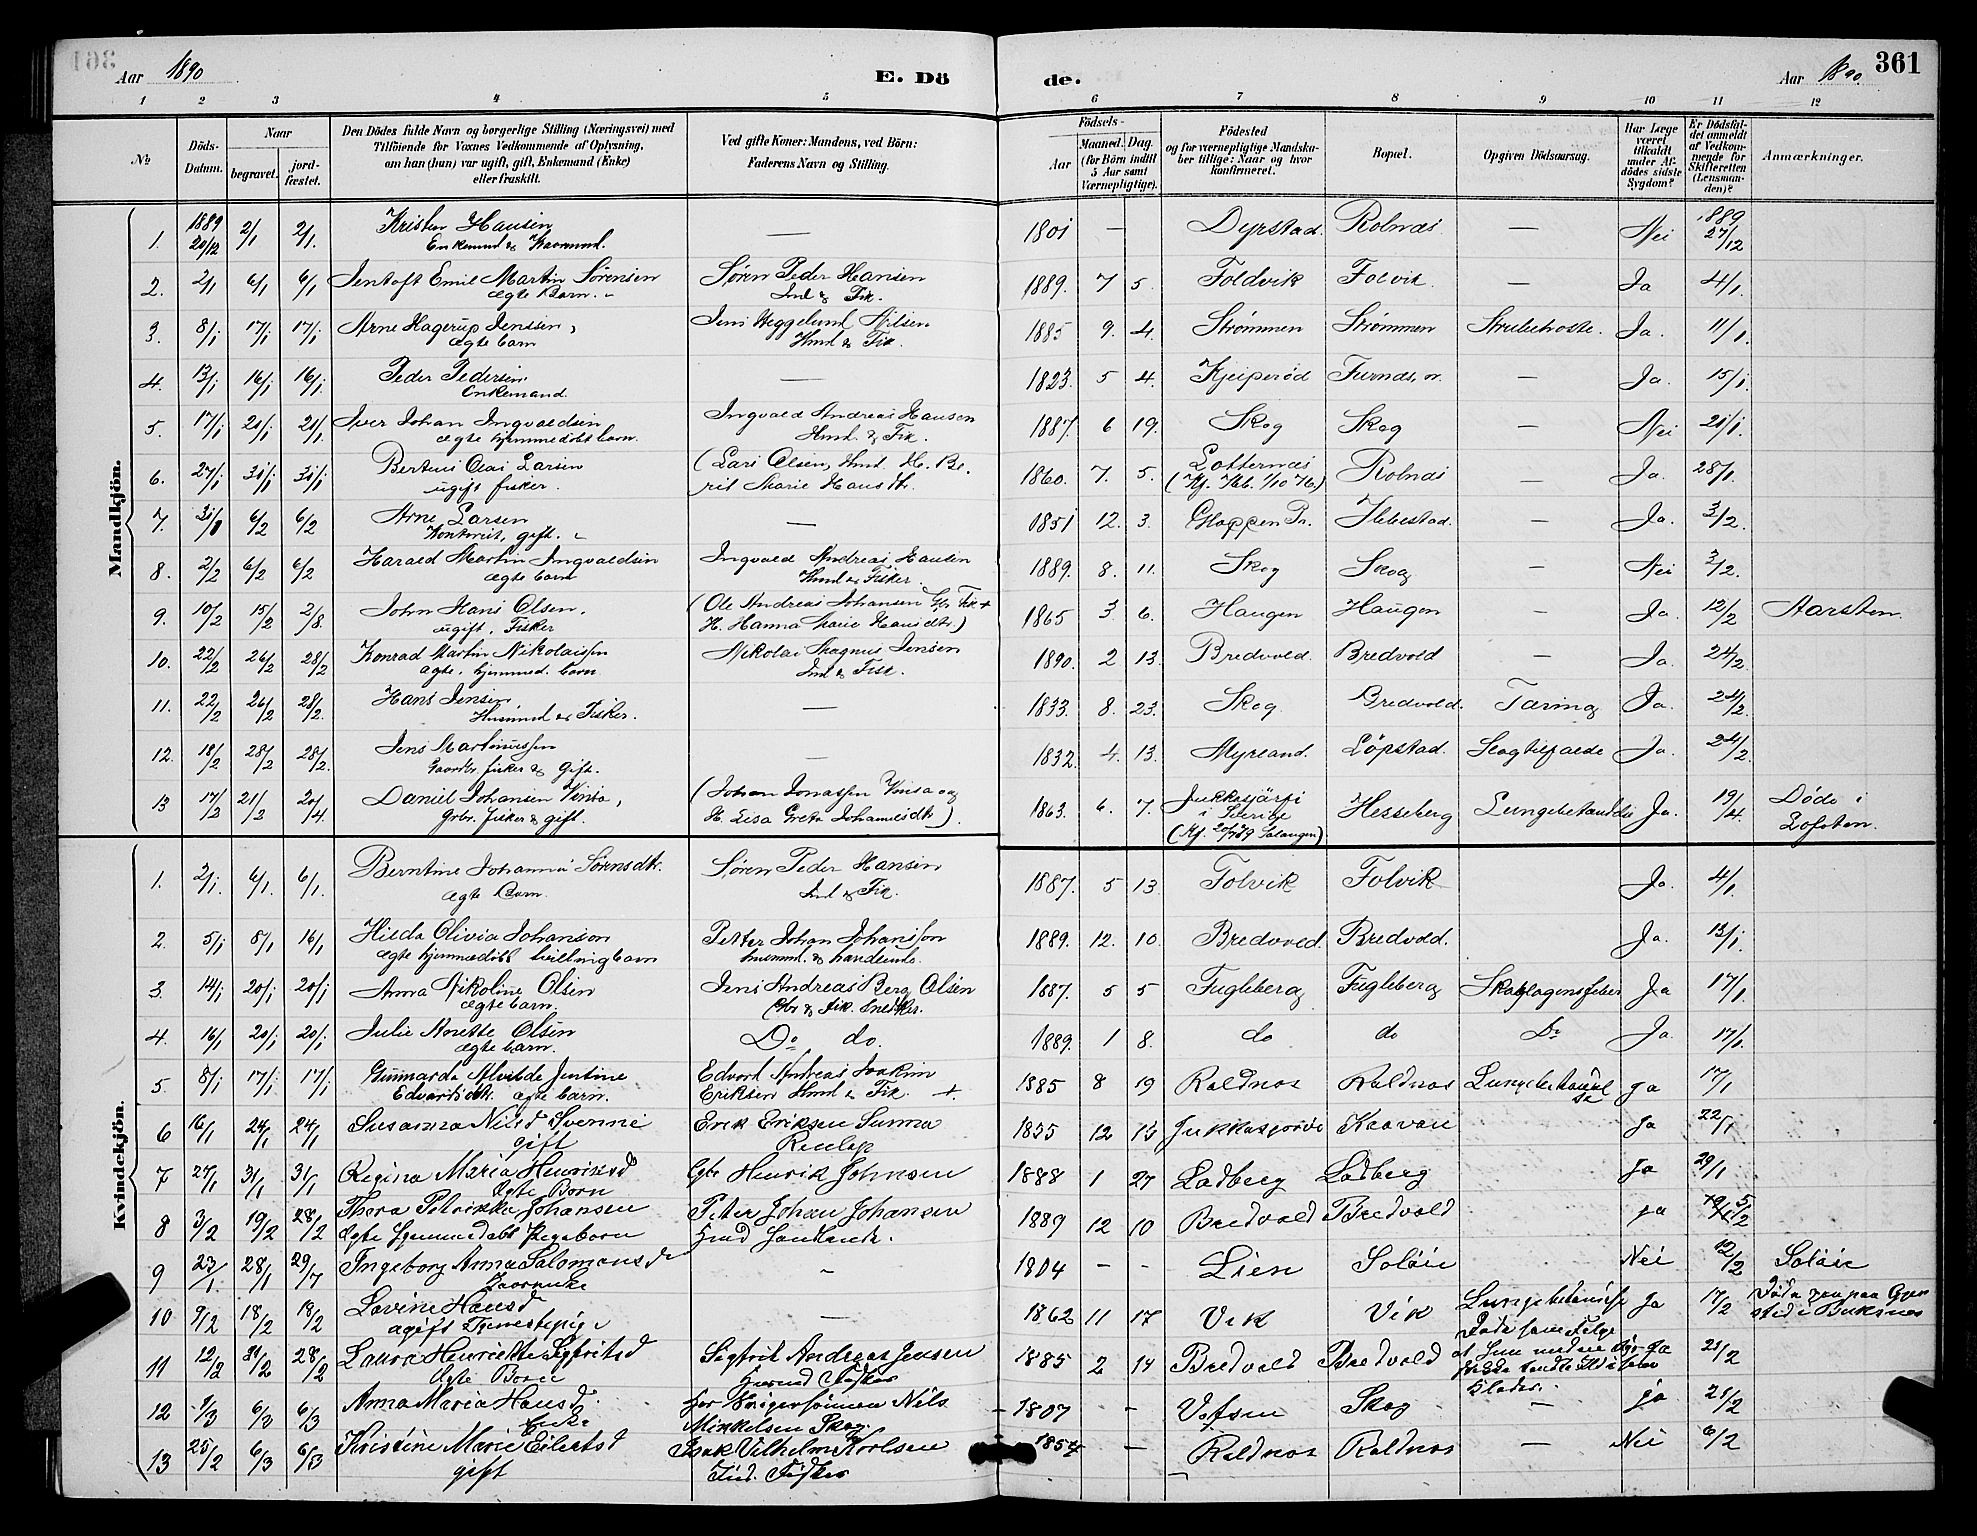 Aar 1890 E. Dö de. Aar 1890. 361
1 2 3 4 5 6 7 8 9 10 11 12
№ Döds-Datum. Naar begravet. jord-fæstet. Den Dödes fulde Navn og borgerlige Stilling (Næringsvei) med Tilföiende for Voxnes Vedkommende af Oplysning, om han (hun) var ugift, gift, Enkemand (Enke) eller fraskilt. Ved gifte Koner: Mandens, ved Börn: Faderens Navn og Stilling. Födsels- Aar Maaned. Dag. (for Börn indtil 5 Aar samt Værnepligtige). Födested og for værnepligtige Mandska-ber tillige: Naar og hvor konfirmeret. Bopæl. Opgiven Dödsaarsag. Har Læge været tilkaldt under Af-dödes sidste Sygdom? Er Dödsfal-det anmeldt af Vedkom-mende for Skifteretten (Lensman-den)? Anmærkninger.
Mandkjön.
1. 1889 20/12 2/1 2/1. Kristen Hansen — 1801 — Dyrstad. Rolnæs. — Nei 1889 27/12
Enkemand &
2. 2/1 6/1 6/1 Jentoft Emil Martin Sørensen Søren Peder Hansen 1889. 7 5. Foldvik Folvik — Ja 4/1.
ægte Barn. Ind & Fisk.
3. 8/1 17/1 17/1 Arne Hagerup Jenssen, Jens Heggelund Nilsen 1885 9. 4. Strømmen Strømmen Strubehoste. Ja. 11/1.
ægte barn Hmd & Fisk.
4. 13/1 16/1 16/1 Peder Pedersen — 1823. 5 4. Kjeiperød Furnæs — Ja. 15/1.
Enkemand.
5. 17/1 21/1 21/1 Iver Johan Ingvaldsen Ingvald Andreas Hansen 1887. 6 19. Skog Skog — Nei 21/1.
ægte hjemmedöbt barn. Hmd. & Fisk.
6. 27/1 31/1 31/1 Bertius Olai Larsen (Lars Olsen, Hmd. H. Be. 1860. 7. 5. Lotternæs Rolnæs — Ja. 28/1.
ugift fisker. rit Marie Hansdtr.
7. 31/1 6/2 6/2 Arne Larsen — 1851 12. 3. Gloppen Pr. Ibbestad. — Ja. 3/2.
Kontorist, gift.
8. 2/2 6/2 6/2 Harald Martin Ingvaldsen Ingvald Andreas Hansen 1889. 8. 11. Skog Skog — Nei 3/2.
ægte barn Hmd & Fisker.
9. 10/2 15/2 2/8. John Hans Olsen. (Ole Andreas Johansen Gbr Fisk + 1865 3. 6. Haugen Haugen — Ja. 12/2 Aarsten.
ugift, Fisker H. Hanna Marie Hansdtr.)
10. 22/2 26/2 28/2 Konrad Martin Nikolaissen Nikolai Magnus Jensen 1890. 2 13. Bredvold. Bredvold — Ja. 24/2.
ægte, hjemmed. barn. Ind & Fisk.
11. 22/2 26/2 28/2. Hans Jensen — 1833. 8. 23. Skog Bredvold. Tæring Ja. 24/2.
Husmand & Fisker.
12. 18/2 28/2 28/2. Jens Martinussen — 1832. 4. 13. Myrland. Löpstad. Slagtilfælde Ja. 24/2.
Gaardbr. fisker & Gift.
13 17/2 21/2 20/4. Daniel Johansen Vinsa, (Johan Jonassen Vinsa og 1863. 6. 7. Jukkasjärfi Hesseberg Ja. 19/4. Døde i
Grbr. fisker & gift. H. Lisa Greta Johannesdtr). i Sverige Lofoten.
Kvindekjön.
1. 2/1. 6/1 6/1. Berntine Johanna Sørensdtr. Søren Peder Hansen 1887. 5 13. Folvik Folvik Ja. 4/1.
ægte Barn. Ind & Fisk.
2. 5/1 8/1 16/1 Hilda Olivia Johanson Petter Johan Johansson 1889. 12. 10. Bredvold. Bredvold. Ja. 13/1.
ægte hjemmedöbt tvillingbarn husmd. & handlende.
3. 14/1 20/1 20/1 Anna Nikoline Olsen Jens Andreas Berg Olsen 1887. 5 5 Fugleberg Fugleberg Skarlagensfeber Ja 17/1.
ægte barn. Gbr & Fisk. Snedker.
4. 16/1 20/1 20/1 Julie Anette Olsen Do do. 1889. 1 8. do do Do Ja. 17/1.
ægte barn.
5 8/1 17/1 17/1 Gunnarda Alvilde Justine Edvard Andreas Joakim 1885 8 19 Roldnæs Roldnæs Lungebetændelse ja 17/1
Edvardsdtr. ægte barn. Eriksen Hmd & Fisk. +.
6 16/1 24/1 24/1 Susanna Nilsd Svonni Erik Eriksen Sunna 1835 12 15 Jukkasjärvi Kaavan ja 22/1
gift
7 27/1 31/1 31/1 Regina Maria Henriksd Gbr Henrik Johnsen 1888 1 27 Ladberg Ladberg ja 29/1
Ægte Barn
8 3/2 19/2 28/2 Thora Petrikka Johansen Peter Johan Johansen 1889 12 10 Bredvold Bredvold ja 5/2
Ægte hjemmedøbt Pigebarn
9 23/1. 28/1 29/7 Ingeborg Anna Salomonsd — 1804 - - Lien Soløie Nei 12/2 Soløie
10 9/2 18/2 18/2 Lovine Hansd — 1862 11 17 Vik Vik Lungebetændelse ja 17/2 Døde
ugift Tjenestepige
11 12/2 21/2 28/2 Laura Henriette Sigfritsd Sigfrit Andreas Jensen 1885 2 14 Bredvold Bredvold Døde som Følge ja 21/2
Ægte Barn Husmd Fisker Klæder.
12 1/3 6/3 6/3 Anna Maria Hansd Nils 1807 - Vefsen Skog — ja 21/2
Enke Mikkelsen Skog
13 25/2 6/3 6/3 Kristine Marie Eilertsd Isak Vilhelm Karlsen 1854 — Roldnæs Roldnæs — Nei 6/2
gift Ind. Fisker